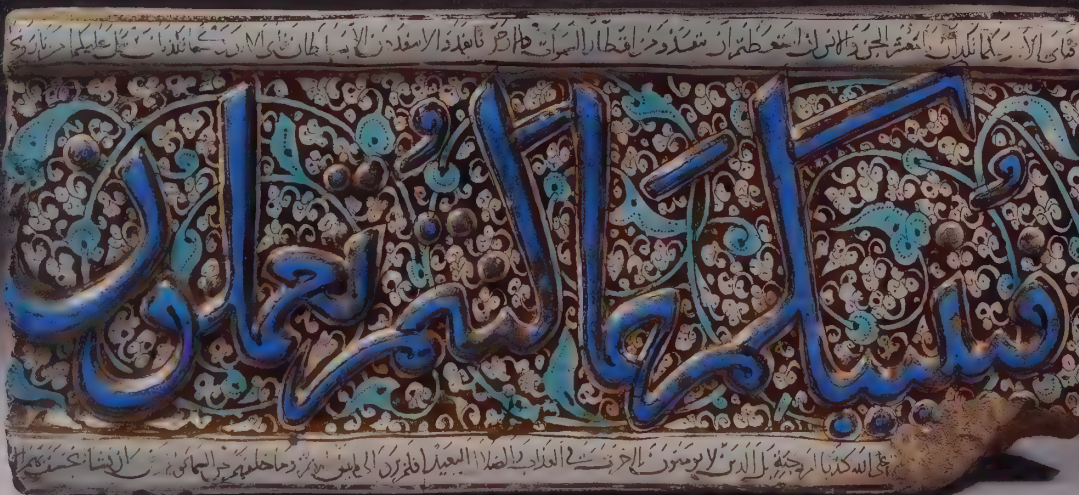 فبأي الا ربكما تكذبان يا معشر الجن والانس ان استطعتم ان تنفذوا من اقطار السموات والارض فانفذوا لا تنفذون الا بسلطان فبأي الا ربكما تكذبان يرسل عليكما من نار و
فينبئكم بما كنتم تعملون
على الله كذبا ام به جنة بل الذين لا يومنون بالاخرة في العذاب والضلال البعيد افلم يروا الى ما بين ايديهم وما خلفهم من السما ان نشا نخسف بهم